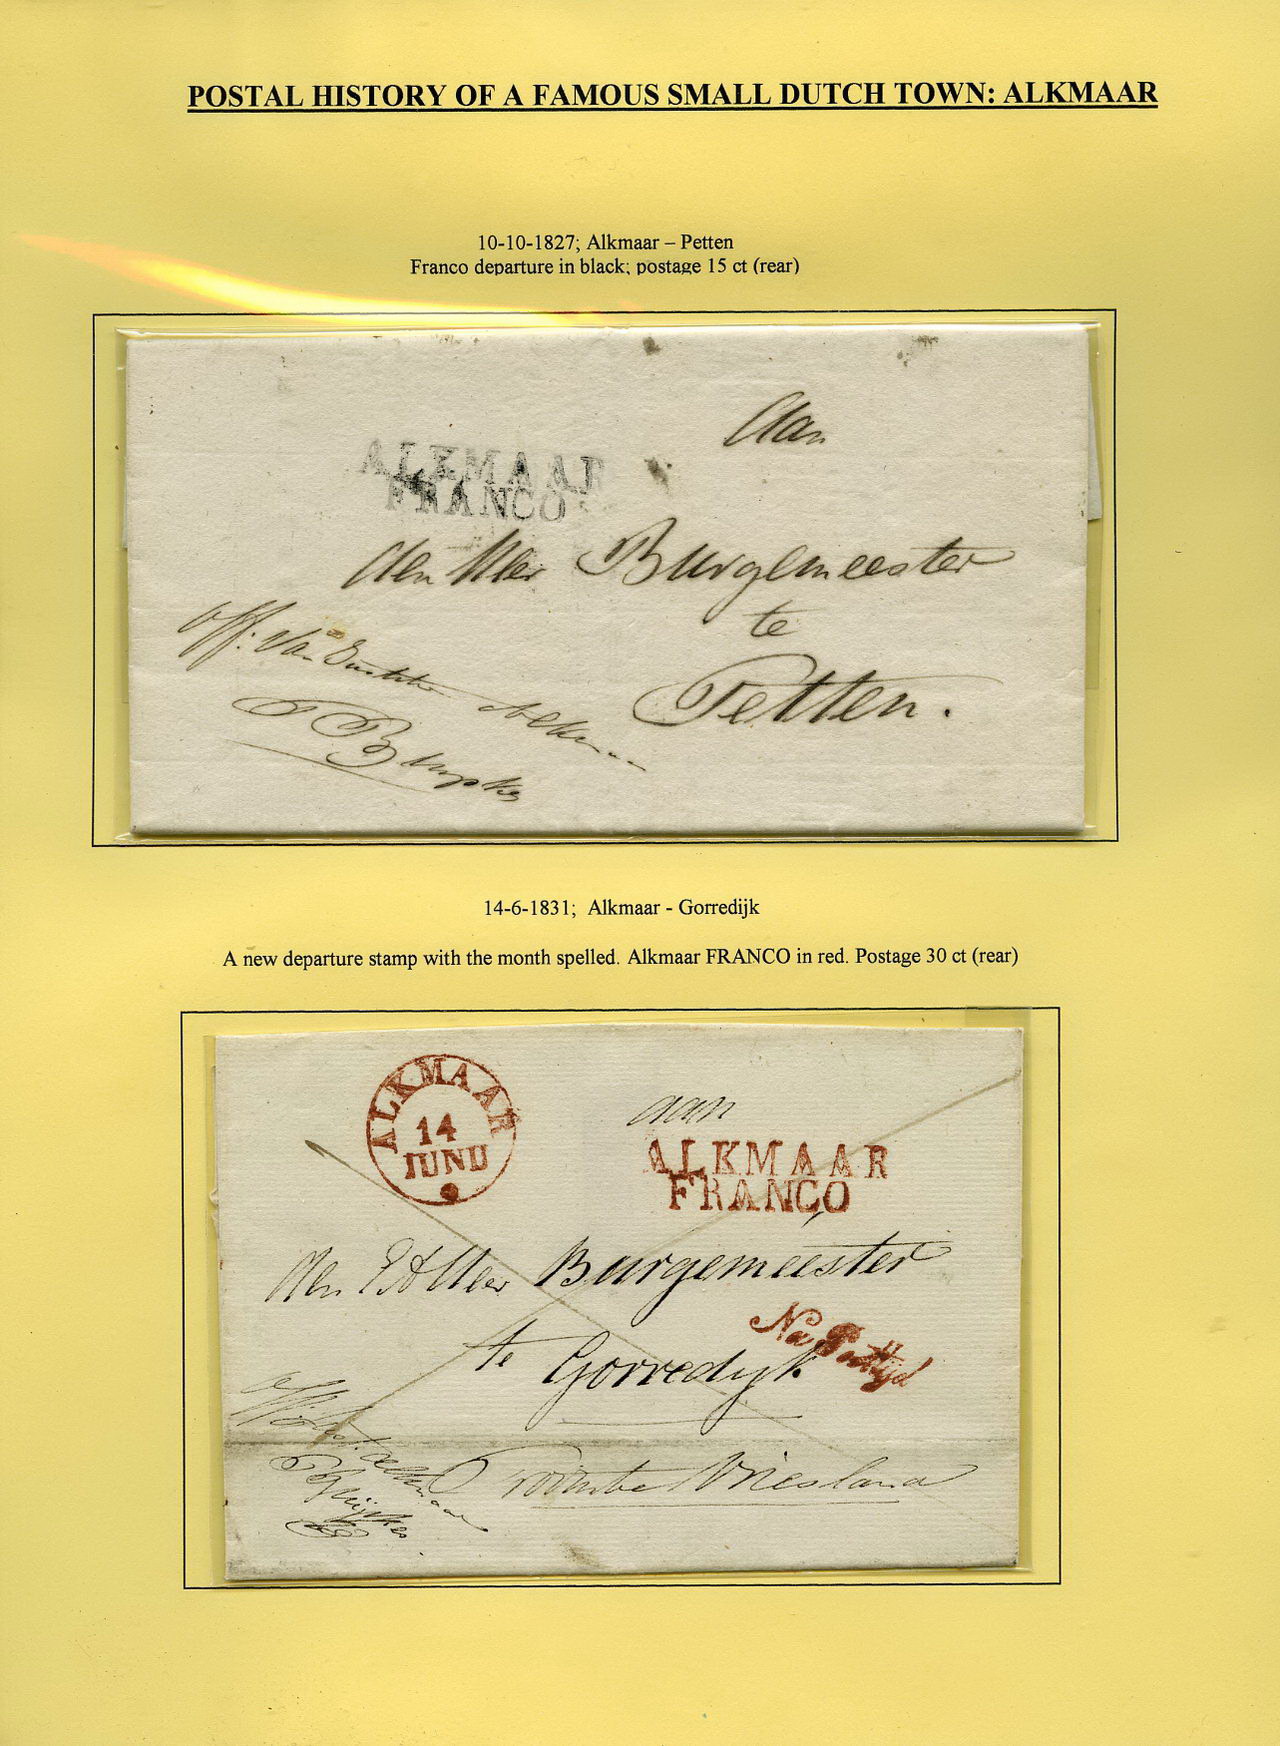 POSTAL HISTORY OF A FAMOUS SMALL DUTCH TOWN: ALKMAAR
10-10-1827; Alkmaar – Petten
Franco departure in black; postage 15 ct (rear)
Aan
ALKMAAR
FRANCO
den Heer Burgemeester
te
Petten.
off: van
14-6-1831; Alkmaar - Gorredijk
A new departure stamp with the month spelled. Alkmaar FRANCO in red. Postage 30 ct (rear)
ALKMAAR
14
JUNIJ
aan
ALKMAAR
FRANCO
den Heer Burgemeester
Na Posttijd
te Gorredijk
Vriesland